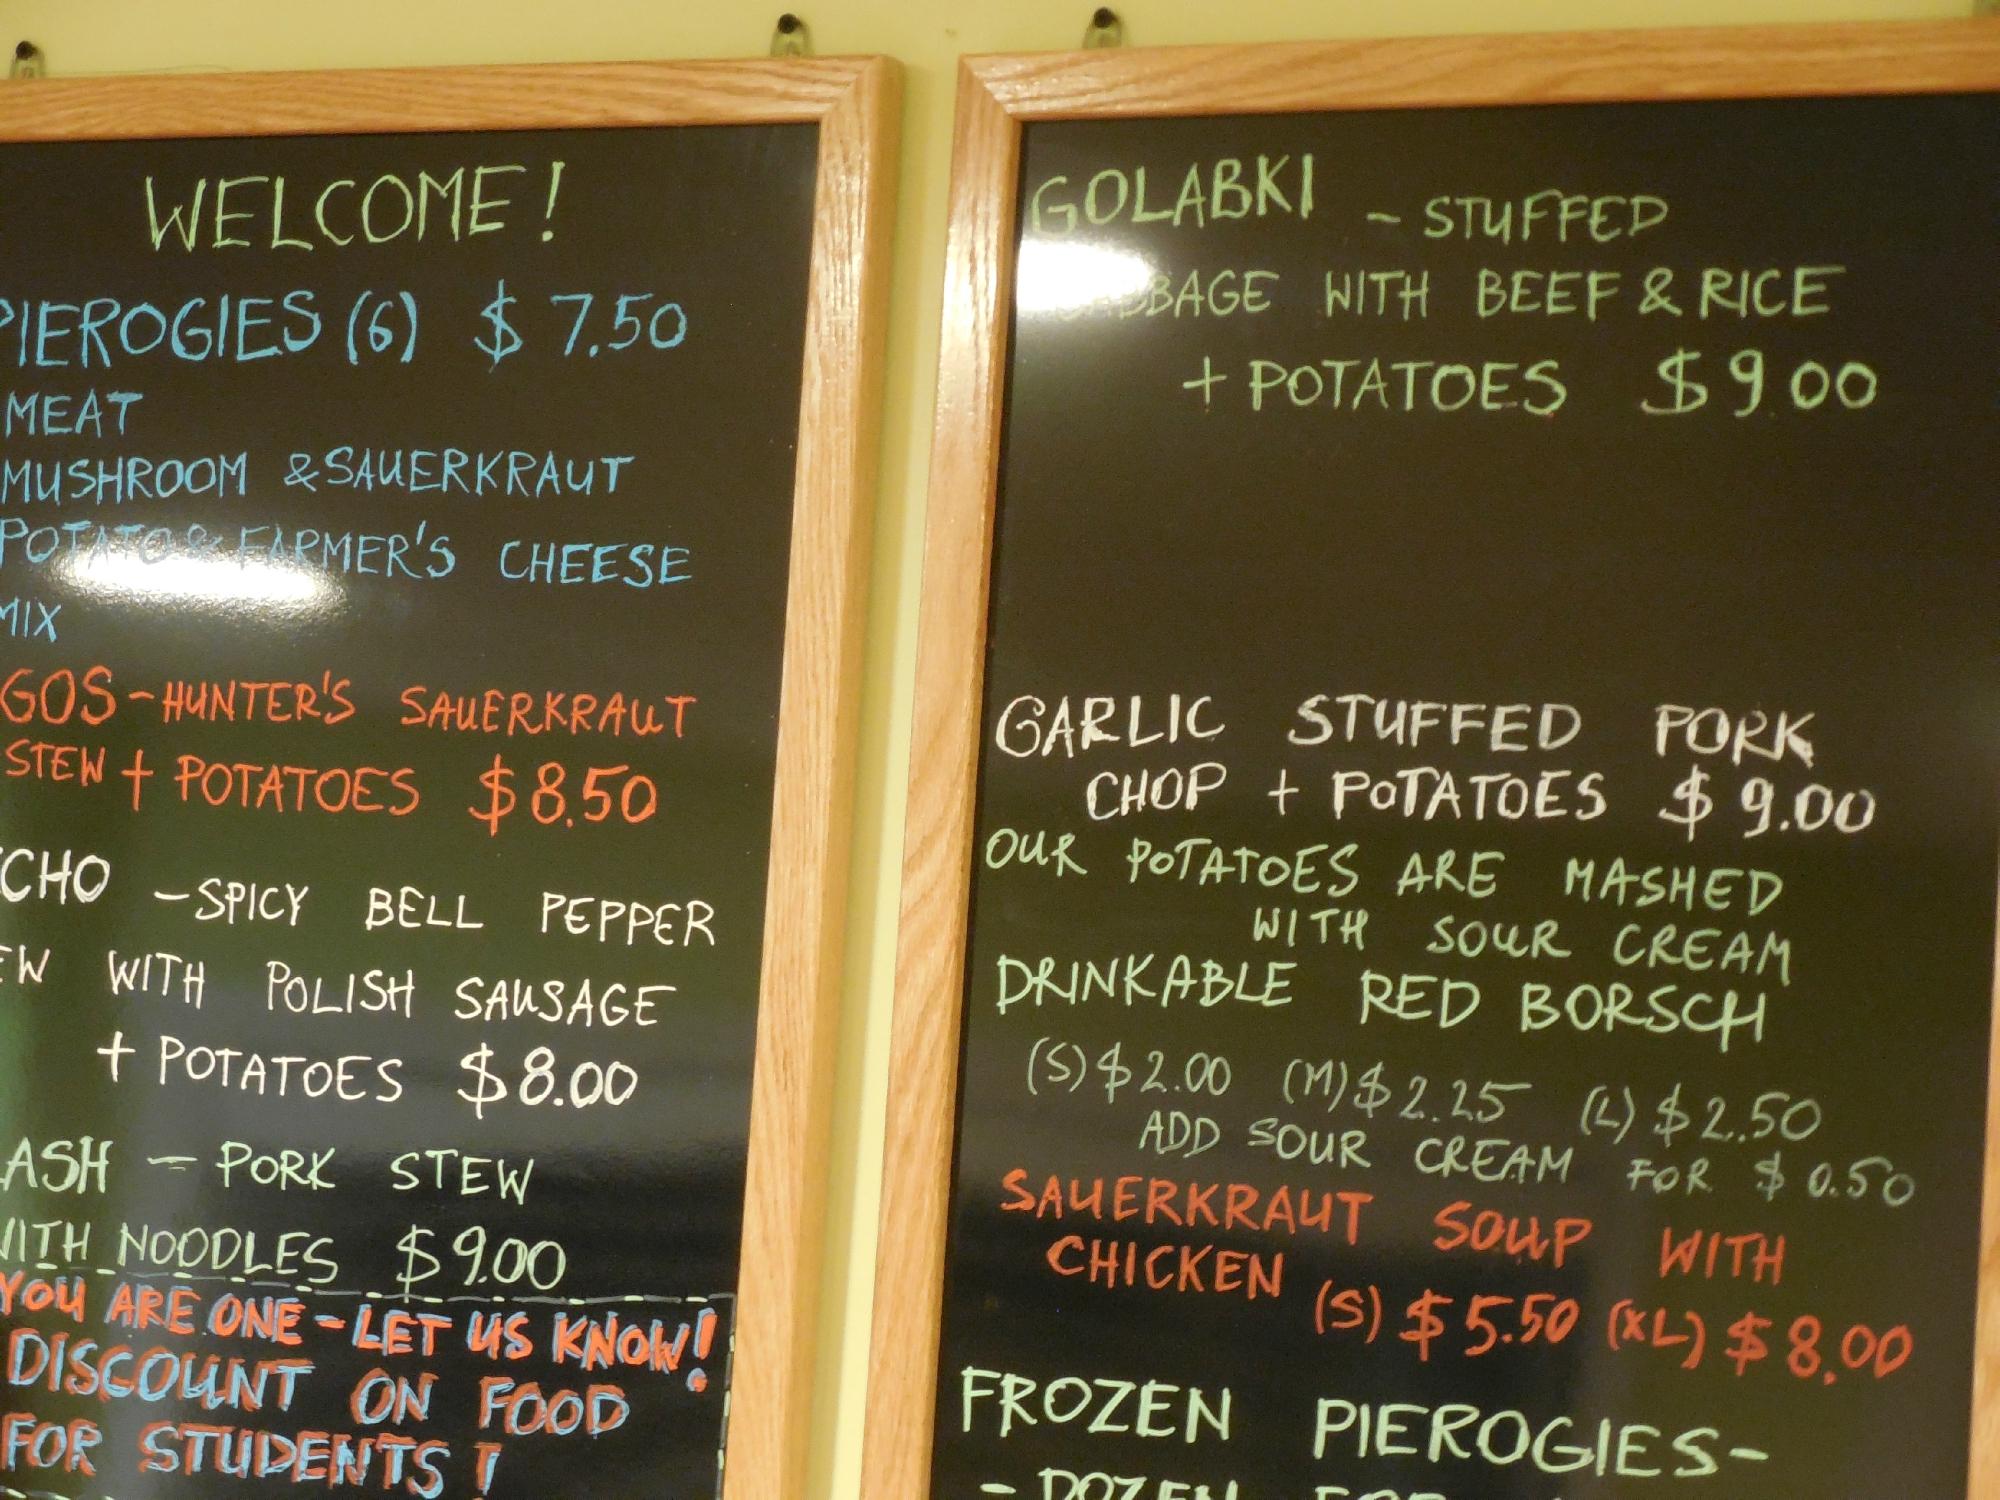 WELCOME!
PIEROGIES (6) $7.50
MEAT
MUSHROOM & SAUERKRAUT
POTATO & FARMER'S CHEESE
MIX
GOS - HUNTER'S SAUERKRAUT
STEW + POTATOES $8.50
CHO - SPICY BELL PEPPER
EW WITH POLISH SAUSAGE
+ POTATOES $8.00
ASH - PORK STEW
WITH NOODLES $9.00
YOU ARE ONE - LET US KNOW!
DISCOUNT ON FOOD
FOR STUDENTS!
GOLABKI - STUFFED
CABBAGE WITH BEEF & RICE
+ POTATOES $9.00
GARLIC STUFFED PORK
CHOP + POTATOES $9.00
OUR POTATOES ARE MASHED
WITH SOUR CREAM
DRINKABLE RED BORSCH
(S) $2.00 (M) $2.25 (L) $2.50
ADD SOUR CREAM FOR $0.50
SAUERKRAUT SOUP WITH
CHICKEN (S) $5.50 (XL) $8.00
FROZEN PIEROGIES -
- DOZEN FOR